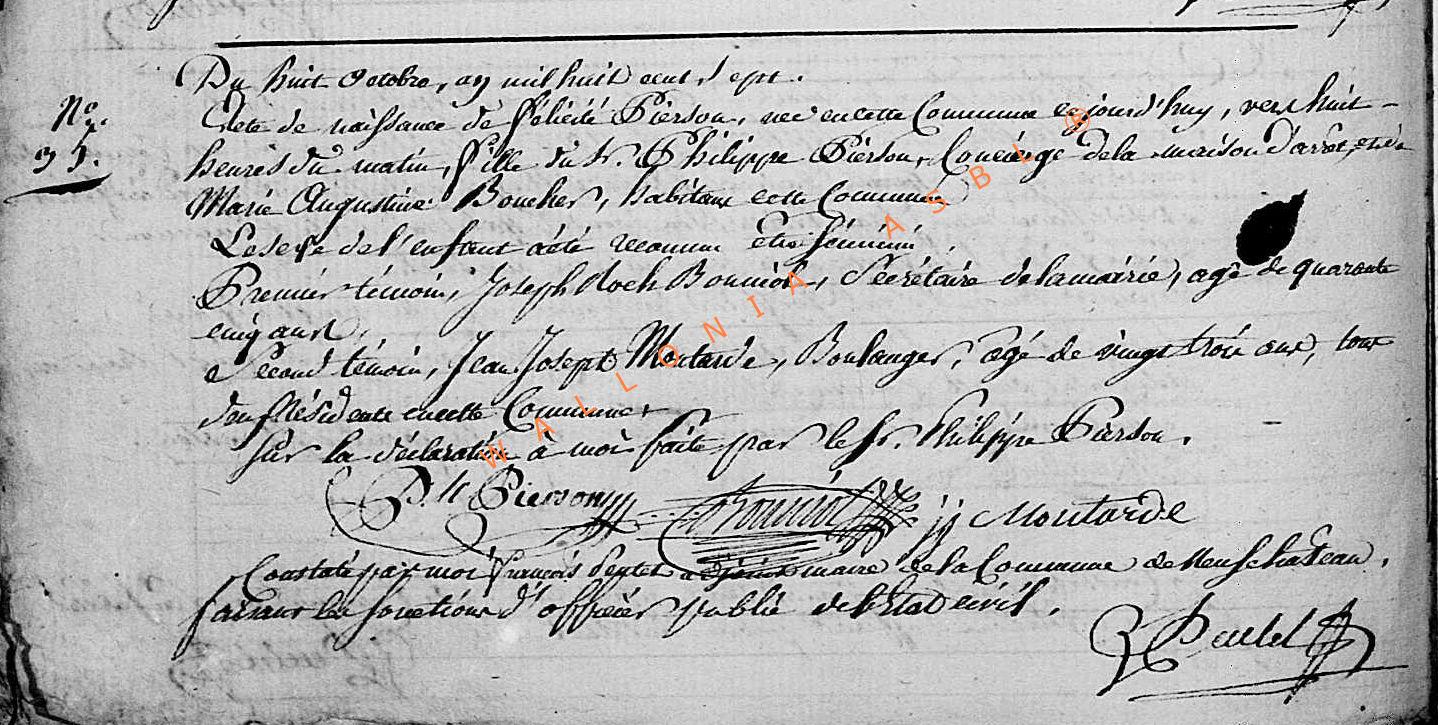 Du huit Octobre, an mil huit cent sept.
N.o
35.
Acte de naissance de félicité Pierson, née en cette Commune cejourd'huy, vers huit
heures du matin, fille du Sr. Philippe Pierson, Concierge de la maison d'arrêt, et de
Marie Augustine Boucher, habitans cette Commune
Le sexe de l'enfant a été reconnu être féminin.
Premier témoin, Joseph Roch Bonniol, Sécrétaire de la mairie, agé de quarante
cinq ans.
Second témoin, Jean Joseph Moutarde, Boulanger, agé de vingt trois ans, tous
deux Résidents en cette Commune.
Sur la déclaration à moi faite par le Sr. Philippe Pierson.
P.h Pierson Bonniol jj Moutarde
Constaté par moi françois adjoint maire de la Commune de Neufchateau,
faisant les fonctions d'officier public de l'Etat civil.
WALLONIA ASBL ®